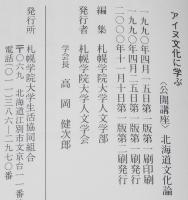 アイヌ文化に学ぶ
〈公開講座〉北海道文化論
一九九〇年四月一五日第一版第一刷印刷
一九九〇年四月二五日第一版第一刷発行
二〇〇〇年十一月十日第一版第二刷発行
編集 札幌学院大学人文学部
発行者 札幌学院大学人文学会
学会長 高岡健次郎
発行所 札幌学院大学生活協同組合
〒〇六九 北海道江別市文京台一一番
電話〇一一―三八六―二九七〇番